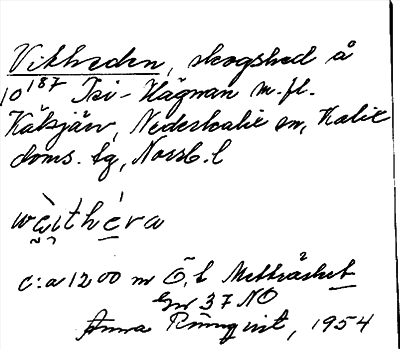 Vitheden, skogshed å
10187 Isi-Hägnan m.fl.
Kälsjärv, Nederkalix sn, Kalix
doms. tg, Norrb. l
wàithéra
c:a 1200 m Ö. l Mettråsket
37 NO
Anna Rönnqvist, 1954